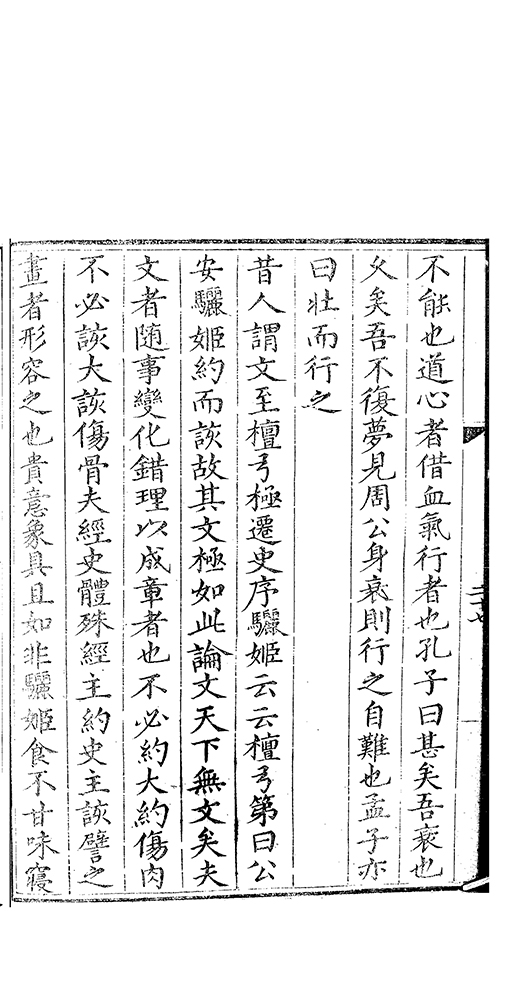 不能也道心者借血氣行者也孔子曰甚矣吾衰也
久矣吾不復夢見周公身衰則行之自難也孟子亦
曰壯而行之
昔人謂文至檀弓極遷史序驪姬云云檀弓第曰公
安驪姬約而該故其文極如此論文天下無文矣夫
文者随事變化錯理以成章者也不必約大約傷肉
不必該大該傷骨夫經史體殊經主約史主該譬之
畫者形容之也貴意象具且如非驪姬食不甘味寢
二十七